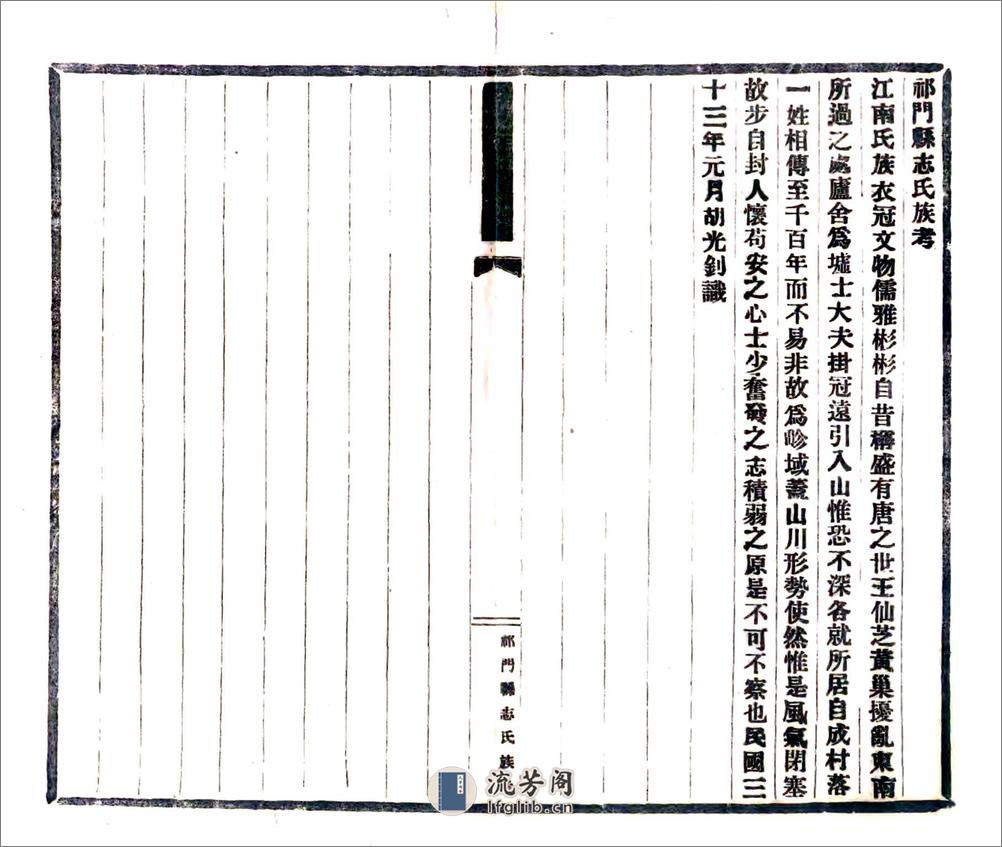 祁門縣志氏族考
江南氏族衣冠文物儒雅彬彬自昔稱盛有唐之世王仙芝黃巢擾亂東南
所過之處廬舍爲墟士大夫掛冠遠引入山惟恐不深各就所居自成村落
一姓相傳至千百年而不易非故爲畛域蓋山川形勢使然惟是風氣閉塞
故步自封人懷苟安之心士少奮發之志積弱之原是不可不察也民國三
十三年元月胡光釗識
祁門縣志氏族
流芳阁
lfglib.cn